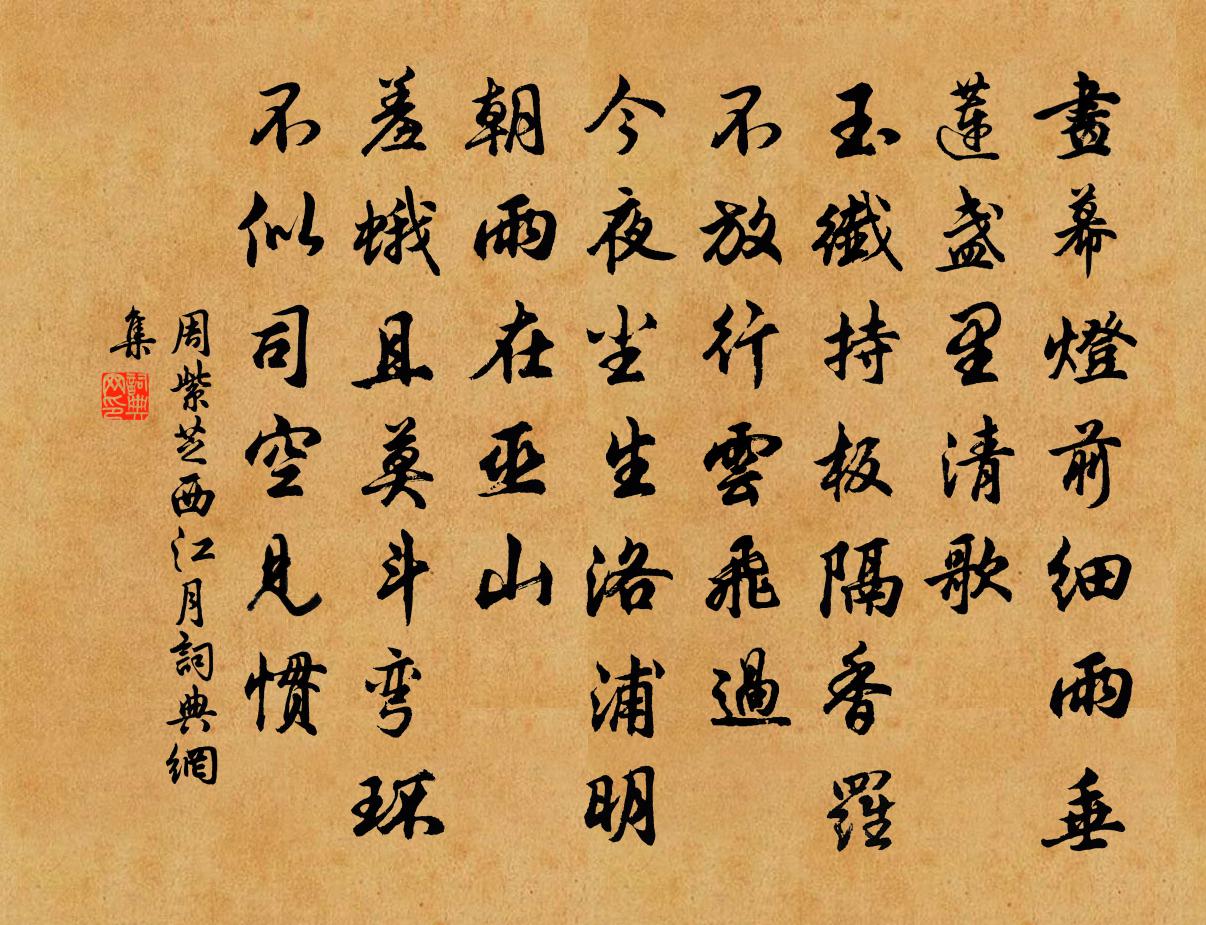 畫幕燈前細雨垂
蓮盞里清歌
玉纖持板隔香羅
不放行雲飛過
今夜尘生洛浦明
朝雨在巫山
羞蛾且莫斗弯环
不似司空見慣
周紫芝西江月詞典網
集
詞典网印